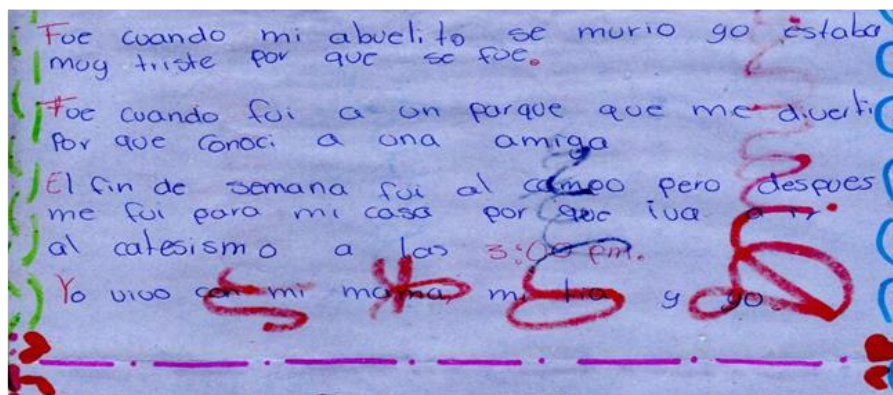 Fue cuando mi abuelito se murio yo estaba
muy triste por que se fue.
Fue cuando fui a un parque que me diverti
Por que conoci a una amiga
El fin de semana fui al campo pero despues
me fui para mi casa por que iva a ir
al catesismo a las 3:00 pm.
Yo vivo con mi mama, mi tia y yo.